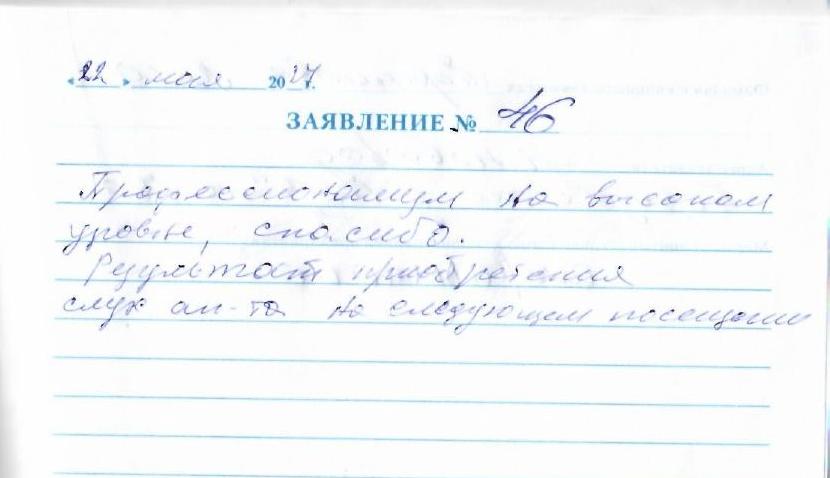 «22» мая 2017 г.
ЗАЯВЛЕНИЕ № 46
Профессионализм на высоком
уровне, спасибо.
Результат приобретения
слух ап-та на следующем посещении